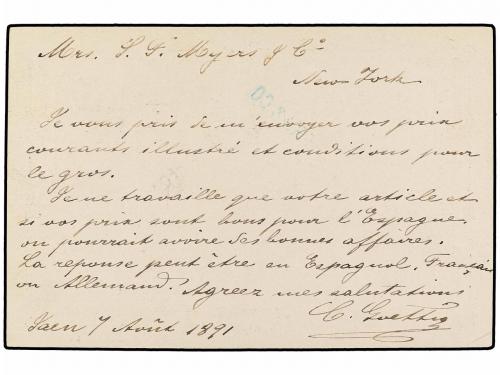 Mrs. S. F. Myers & Cº
New York
Je vous pris de m'envoyer vos prix
courants illustré et conditions pour
le gros.
Je ne travaille que votre article et
si vos prix sont bons pour l'Espagne
on pourrait avoire des bonnes affaires.
La reponse peut être en Espagnol, Français
ou Allemand. Agreez mes salutations
C. Goettig
Jaen 7 Août 1891